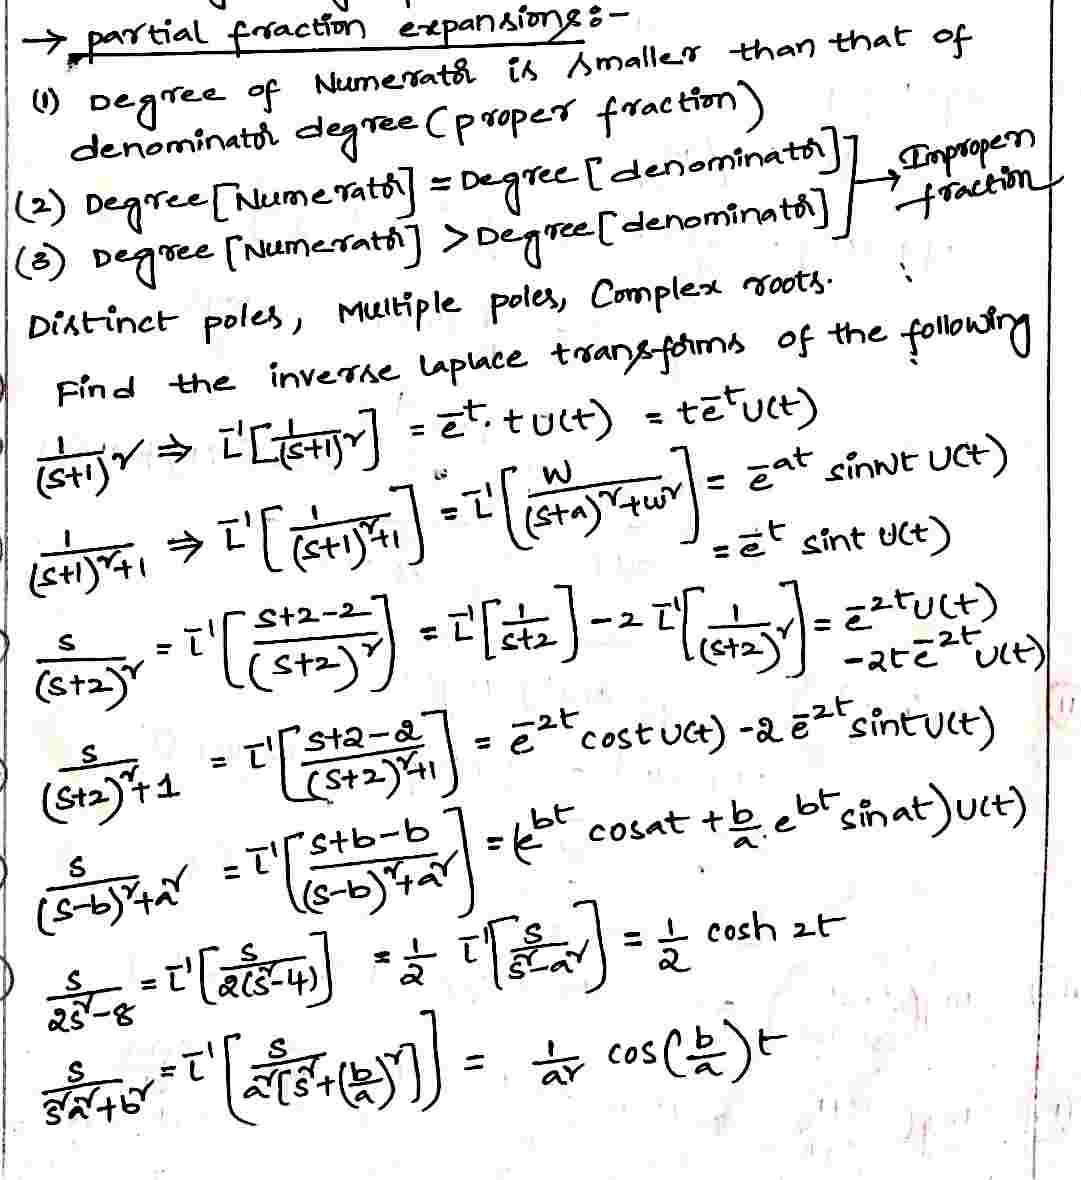 → partial fraction expansions:-
(1) Degree of Numerator is smaller than that of
denominator degree (proper fraction)
(2) Degree [Numerator] = Degree [denominator]
(3) Degree [Numerator] > Degree [denominator]
] → Improper fraction
Distinct poles, Multiple poles, Complex roots.
Find the inverse laplace transforms of the following
1/(s+1)² ⇒ L⁻¹[1/(s+1)²] = e⁻ᵗ. t u(t) = te⁻ᵗu(t)
1/((s+1)²+1) ⇒ L⁻¹[1/((s+1)²+1)] = L⁻¹[w/((s+a)²+w²)] = e⁻ᵃᵗ sinwt u(t)
= e⁻ᵗ sint u(t)
s/(s+2)² = L⁻¹[(s+2-2)/(s+2)²] = L⁻¹[1/(s+2)] - 2 L⁻¹[1/(s+2)²] = e⁻²ᵗu(t)
-2te⁻²ᵗu(t)
s/((s+2)²+1) = L⁻¹[(s+2-2)/((s+2)²+1)] = e⁻²ᵗ cost u(t) - 2 e⁻²ᵗ sint u(t)
s/((s-b)²+a²) = L⁻¹[(s+b-b)/((s-b)²+a²)] = (eᵇᵗ cosat + b/a. eᵇᵗ sinat) u(t)
s/(2s²-8) = L⁻¹[s/(2(s²-4))] = 1/2 L⁻¹[s/(s²-a²)] = 1/2 cosh 2t
s/(s²a²+b²) = L⁻¹[s/(a²[s²+(b/a)²])] = 1/a² cos(b/a)t